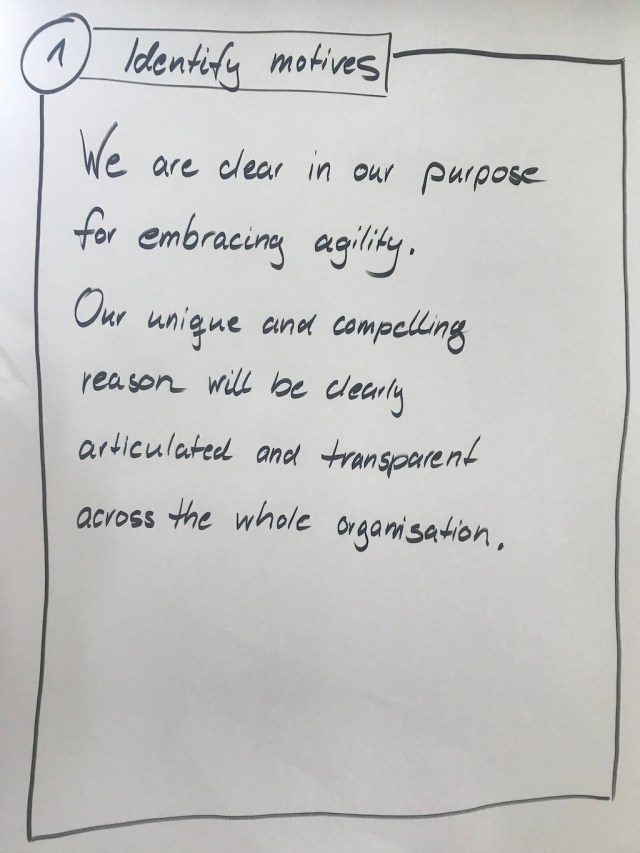 1 Identify motives
We are clear in our purpose
for embracing agility.
Our unique and compelling
reason will be clearly
articulated and transparent
across the whole organisation.